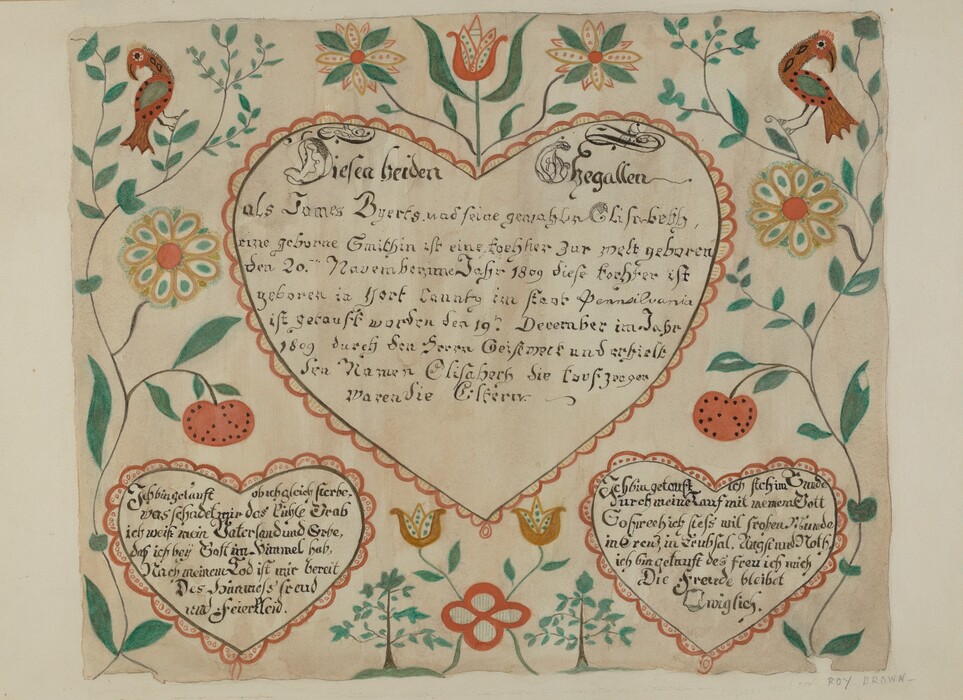 Diesen beiden Ehegatten
als James Byerts und seine gemahlin Elisabeth,
eine geborne Smithin ist eine tochter zur welt geboren
den 20ten November im Jahr 1809 diese tochter ist
geboren in York County im staat Pennsilvania
ist getauft worden den 19t December im Jahr
1809 durch den Herrn Geisweit und erhielt
den Namen Elisabeth die taufzeuger
waren die Eltern.
Ich bin getauft ob ich gleich sterbe.
was schadet mir das kühle Grab
ich weiß mein Vaterland und Erbe,
daß ich bey Gott im Himmel hab,
Nach meinem Tod ist mir bereit
Des Himmels freud
und Feierkleid.
Ich bin getauft ich steh im Bunde
Durch meine Tauf mit meinem Gott
So sprech ich stets mit frohen Munde
in Creuz, in Trübsal, Angst und Noth,
ich bin getauft des freu ich mich
Die Freude bleibet
Ewiglich.
ROY BROWN